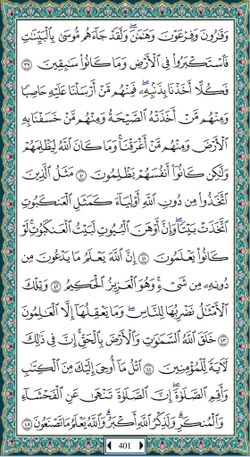 وَقَٰرُونَ وَفِرْعَوْنَ وَهَٰمَٰنَ ۖ وَلَقَدْ جَآءَهُم مُّوسَىٰ بِٱلْبَيِّنَٰتِ
فَٱسْتَكْبَرُوا۟ فِى ٱلْأَرْضِ وَمَا كَانُوا۟ سَٰبِقِينَ ٣٩
فَكُلًّا أَخَذْنَا بِذَنۢبِهِۦ ۖ فَمِنْهُم مَّنْ أَرْسَلْنَا عَلَيْهِ حَاصِبًا
وَمِنْهُم مَّنْ أَخَذَتْهُ ٱلصَّيْحَةُ وَمِنْهُم مَّنْ خَسَفْنَا بِهِ
ٱلْأَرْضَ وَمِنْهُم مَّنْ أَغْرَقْنَا ۚ وَمَا كَانَ ٱللَّهُ لِيَظْلِمَهُمْ
وَلَٰكِن كَانُوٓا۟ أَنفُسَهُمْ يَظْلِمُونَ ٤٠ مَثَلُ ٱلَّذِينَ
ٱتَّخَذُوا۟ مِن دُونِ ٱللَّهِ أَوْلِيَآءَ كَمَثَلِ ٱلْعَنكَبُوتِ
ٱتَّخَذَتْ بَيْتًا ۖ وَإِنَّ أَوْهَنَ ٱلْبُيُوتِ لَبَيْتُ ٱلْعَنكَبُوتِ ۖ لَوْ
كَانُوا۟ يَعْلَمُونَ ٤١ إِنَّ ٱللَّهَ يَعْلَمُ مَا يَدْعُونَ مِن
دُونِهِۦ مِن شَىْءٍ ۚ وَهُوَ ٱلْعَزِيزُ ٱلْحَكِيمُ ٤٢ وَتِلْكَ
ٱلْأَمْثَٰلُ نَضْرِبُهَا لِلنَّاسِ ۖ وَمَا يَعْقِلُهَآ إِلَّا ٱلْعَٰلِمُونَ
٤٣ خَلَقَ ٱللَّهُ ٱلسَّمَٰوَٰتِ وَٱلْأَرْضَ بِٱلْحَقِّ ۚ إِنَّ فِى ذَٰلِكَ
لَءَايَةً لِّلْمُؤْمِنِينَ ٤٤ ٱتْلُ مَآ أُوحِىَ إِلَيْكَ مِنَ ٱلْكِتَٰبِ
وَأَقِمِ ٱلصَّلَوٰةَ ۖ إِنَّ ٱلصَّلَوٰةَ تَنْهَىٰ عَنِ ٱلْفَحْشَآءِ
وَٱلْمُنكَرِ ۗ وَلَذِكْرُ ٱللَّهِ أَكْبَرُ ۗ وَٱللَّهُ يَعْلَمُ مَا تَصْنَعُونَ ٤٥
401